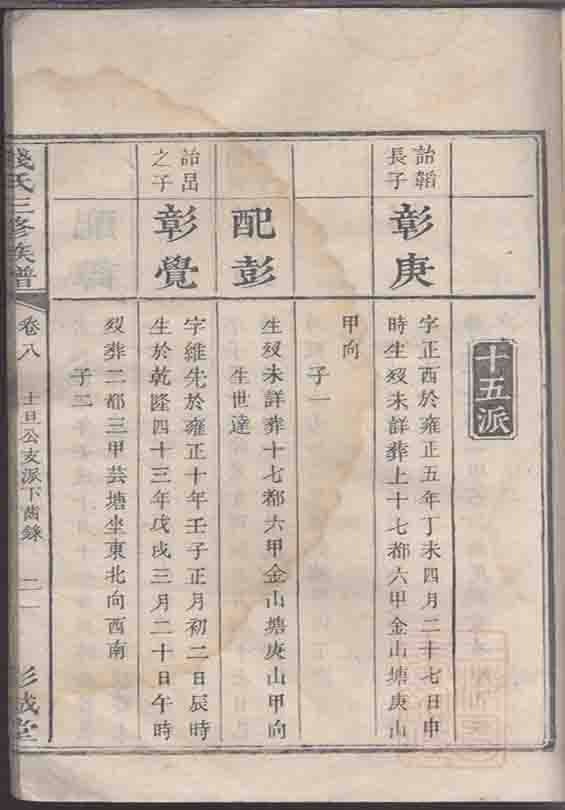 十五派
詒韜
長子
彰庚
字正西於雍正五年丁未四月二十七日申
時生歿未詳葬上十七都六甲金山塘庚山
甲向
子一
配彭
生歿未詳葬十七都六甲金山塘庚山甲向
生世達
詒岊
之子
彰覺
字維先於雍正十年壬子正月初二日辰時
生於乾隆四十三年戊戌三月二十日午時
歿葬二都三甲芸塘坐東北向西南
子二
錢氏三修族譜
卷八
士旦公支派下齒錄
二
彭城堂